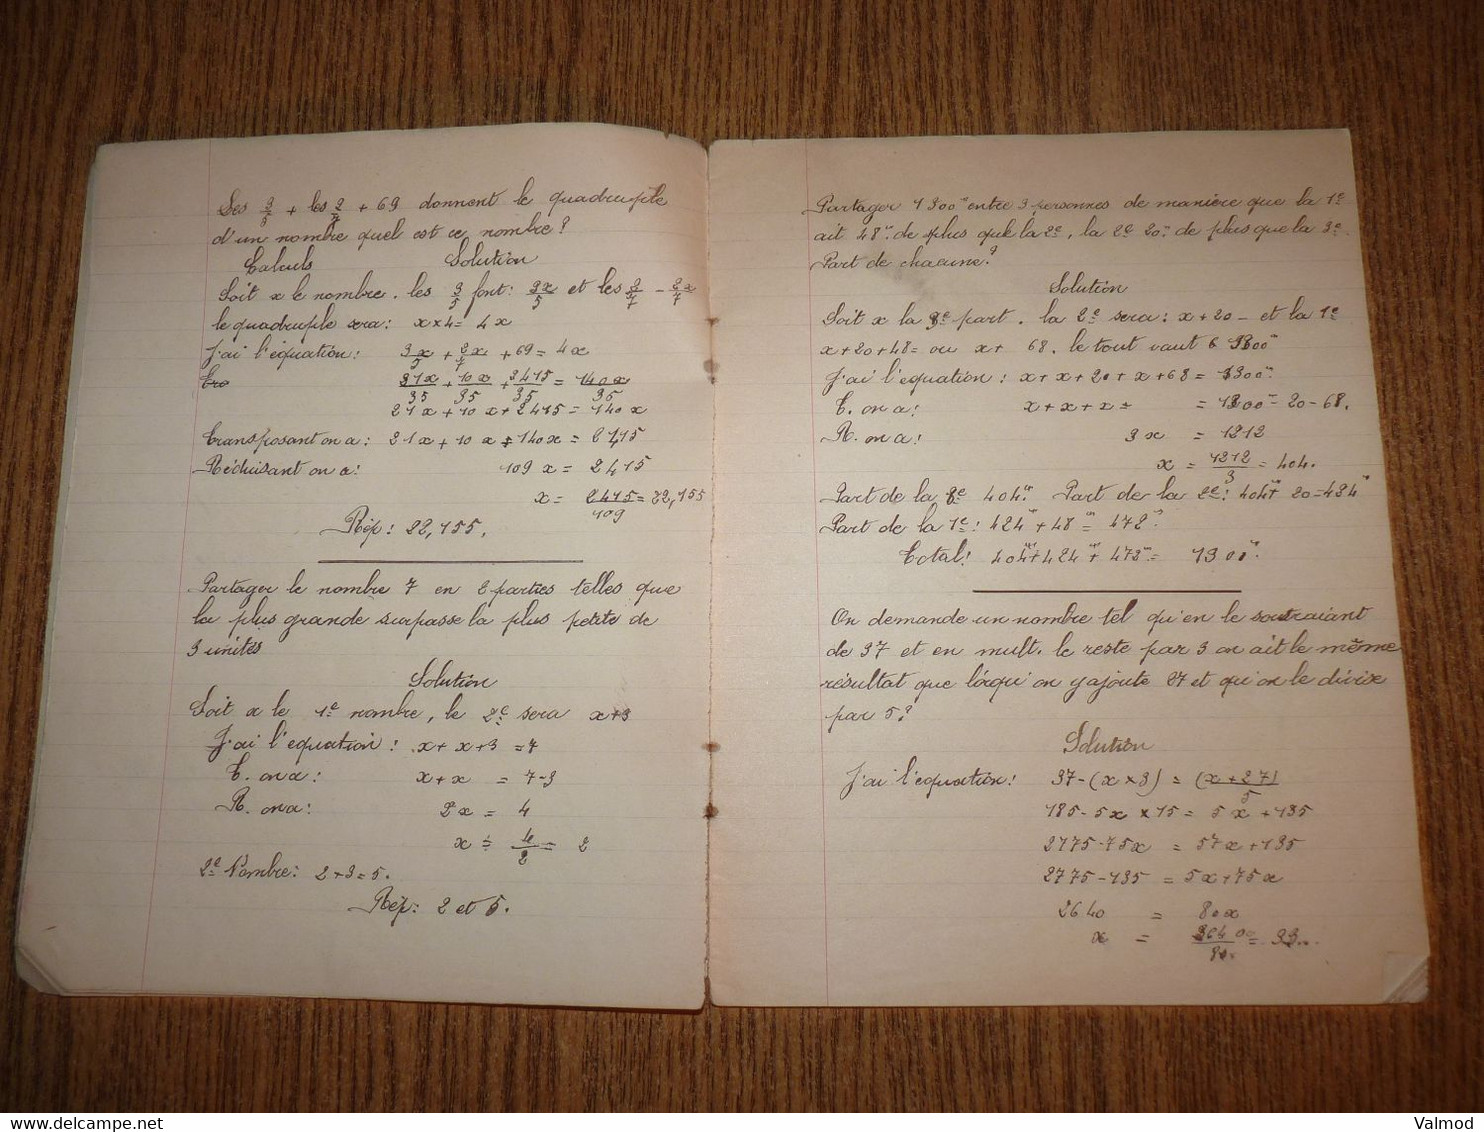 Les 3/5 + les 2/7 + 69 donnent le quadruple
d'un nombre quel est ce nombre?
Calculs Solution
Soit x le nombre. les 3/5 font: 3x/5 et les 2/7 - 2x/7
le quadruple sera: x×4= 4x
J'ai l'équation: 3x/5 + 2x/7 + 69 = 4x
21x/35 + 10x/35 + 2415/35 = 140x/35
21x + 10x + 2415 = 140x
Transposant on a: 21x + 10x + 140x = 2415
Réduisant on a: 109x = 2415
x = 2415/109 = 22,155
Rép: 22,155.
Partager le nombre 7 en 2 parties telles que
la plus grande surpasse la plus petite de
3 unités
Solution
Soit x le 1e nombre, le 2e sera x+3
J'ai l'equation: x + x+3 = 7
T. on a: x+x = 7-3
R. on a: 2x = 4
x = 4/2 = 2
2e Nombre: 2+3=5.
Rép: 2 et 5.
Partager 1300m entre 3 personnes de manière que la 1e
ait 48m de plus que la 2e, la 2e 20m de plus que la 3e.
Part de chacune?
Solution
Soit x la 3e part. la 2e sera: x+20 - et la 1e
x+20+48= ou x+ 68. le tout vaut 1300m
J'ai l'equation: x+x+20+x+68 = 1300m
T. on a: x+x+x = = 1300-20-68.
R. on a: 3x = 1212
x = 1212/3 = 404.
Part de la 3e 404m. Part de la 2e: 404m + 20=424m
Part de la 1e: 424m +48= 472m.
Total: 404m+424m+472m= 1300m.
On demande un nombre tel qu'en le soutraiant
de 37 et en mult. le reste par 3 on ait le même
résultat que lorqu'on y ajoute 27 et qu'on le divise
par 5?
Solution
J'ai l'equation: 37-(x×3) = (x+27)/5
185-5x×15= 5x+135
2775-75x = 5x+135
2775-135 = 5x+75x
2640 = 80x
x = 2640/80 = 33...
Valmod